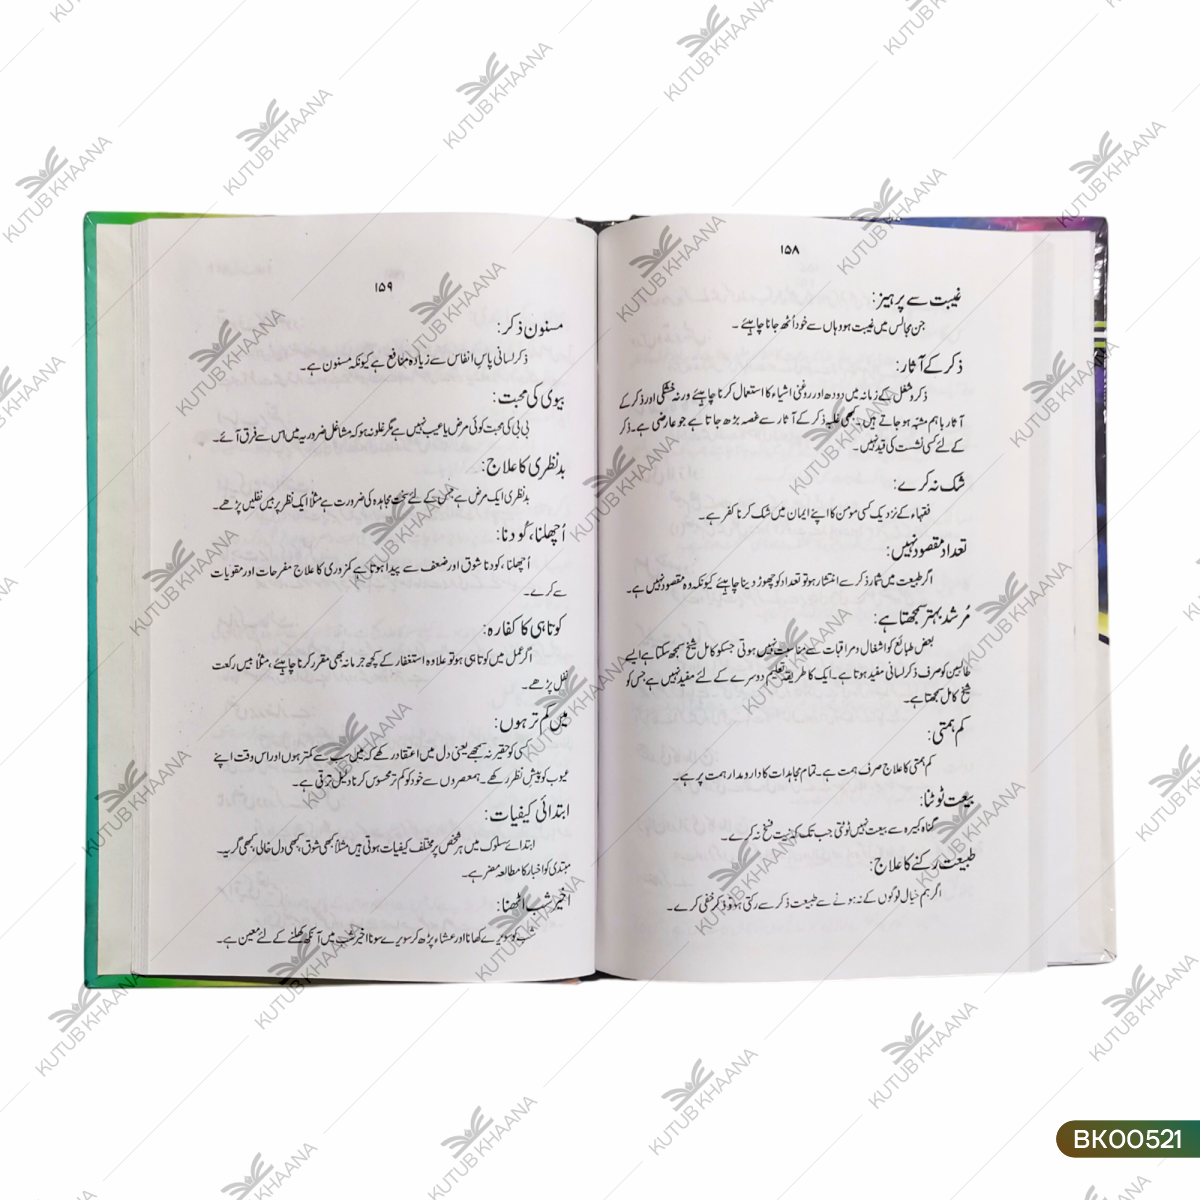 ۱۵۸
غیبت سے پرہیز:
جن مجالس میں غیبت ہو وہاں سے خود اُٹھ جانا چاہئے ۔
ذکر کے آثار:
ذکر و شغل کے زمانہ میں دودھ اور روغنی اشیاء کا استعمال کرنا چاہئے ورنہ خشکی اور ذکر کے
آثار باہم مشتبہ ہو جاتے ہیں۔ کبھی غلبہ ذکر کے آثار سے غصہ بڑھ جاتا ہے جو عارضی ہے۔ ذکر
کے لئے کسی نشست کی قید نہیں۔
شک نہ کرے:
فقہاء کے نزدیک کسی مومن کا اپنے ایمان میں شک کرنا کفر ہے۔
تعداد مقصود نہیں:
اگر طبیعت میں شمار ذکر سے انتشار ہو تو تعداد کو چھوڑ دینا چاہئے کیونکہ وہ مقصود نہیں ہے۔
مُرشد بہتر سمجھتا ہے:
بعض طبائع کو اشغال و مراقبات سے مناسبت نہیں ہوتی جسکو کامل شیخ سمجھ سکتا ہے ایسے
طالبین کو صرف ذکر لسانی مفید ہوتا ہے۔ ایک کا طریقہ تعلیم دوسرے کے لئے مفید نہیں ہے جس کو
شیخ کامل سمجھتا ہے۔
کم ہمتی:
کم ہمتی کا علاج صرف ہمت ہے۔ تمام مجاہدات کا دارومدار ہمت پر ہے۔
بیعت ٹوٹنا:
گناہ کبیرہ سے بیعت نہیں ٹوٹتی جب تک کہ نیت فسخ نہ کرے۔
طبیعت رکنے کا علاج:
اگر ہم خیال لوگوں کے نہ ہونے سے طبیعت ذکر سے رکتی ہو تو ذکر خفی کرے۔
۱۵۹
مسنون ذکر:
ذکر لسانی پاس انفاس سے زیادہ نافع ہے کیونکہ مسنون ہے۔
بیوی کی محبت:
بی بی کی محبت کوئی مرض یا عیب نہیں ہے مگر غلو نہ ہو کہ مشاغل ضروریہ میں اس سے فرق آئے۔
بدنظری کا علاج:
بدنظری ایک مرض ہے جس کے لئے سخت مجاہدہ کی ضرورت ہے مثلاً ایک نظر پر بیس نفلیں پڑھے۔
اُچھلنا، کُودنا:
اُچھلنا، کودنا شوق اور ضعف سے پیدا ہوتا ہے کمزوری کا علاج مفرحات اور مقویات
سے کرے۔
کوتاہی کا کفارہ:
اگر عمل میں کوتاہی ہو تو علاوہ استغفار کے کچھ جرمانہ بھی مقرر کرنا چاہئے مثلاً بیس رکعت
نفل پڑھے۔
میں کم تر ہوں:
کسی کو حقیر نہ سمجھے یعنی دل میں اعتقاد رکھے کہ میں سب سے کمتر ہوں اور اس وقت اپنے
عیوب کو پیش نظر رکھے۔ ہمعصروں سے خود کو کم تر محسوس کرنا دلیل ترقی ہے۔
ابتدائی کیفیات:
ابتدائے سلوک میں ہر شخص پر مختلف کیفیات ہوتی ہیں مثلاً کبھی شوق، کبھی دل خالی، کبھی گریہ۔
مبتدی کو اخبار کا مطالعہ مضر ہے۔
اخیر شب اٹھنا:
شب کو سویرے کھانا اور عشاء پڑھ کر سویرے سونا اخیر شب میں آنکھ کھلنے کے لئے معین ہے۔
KUTUB KHAANA
BK00521